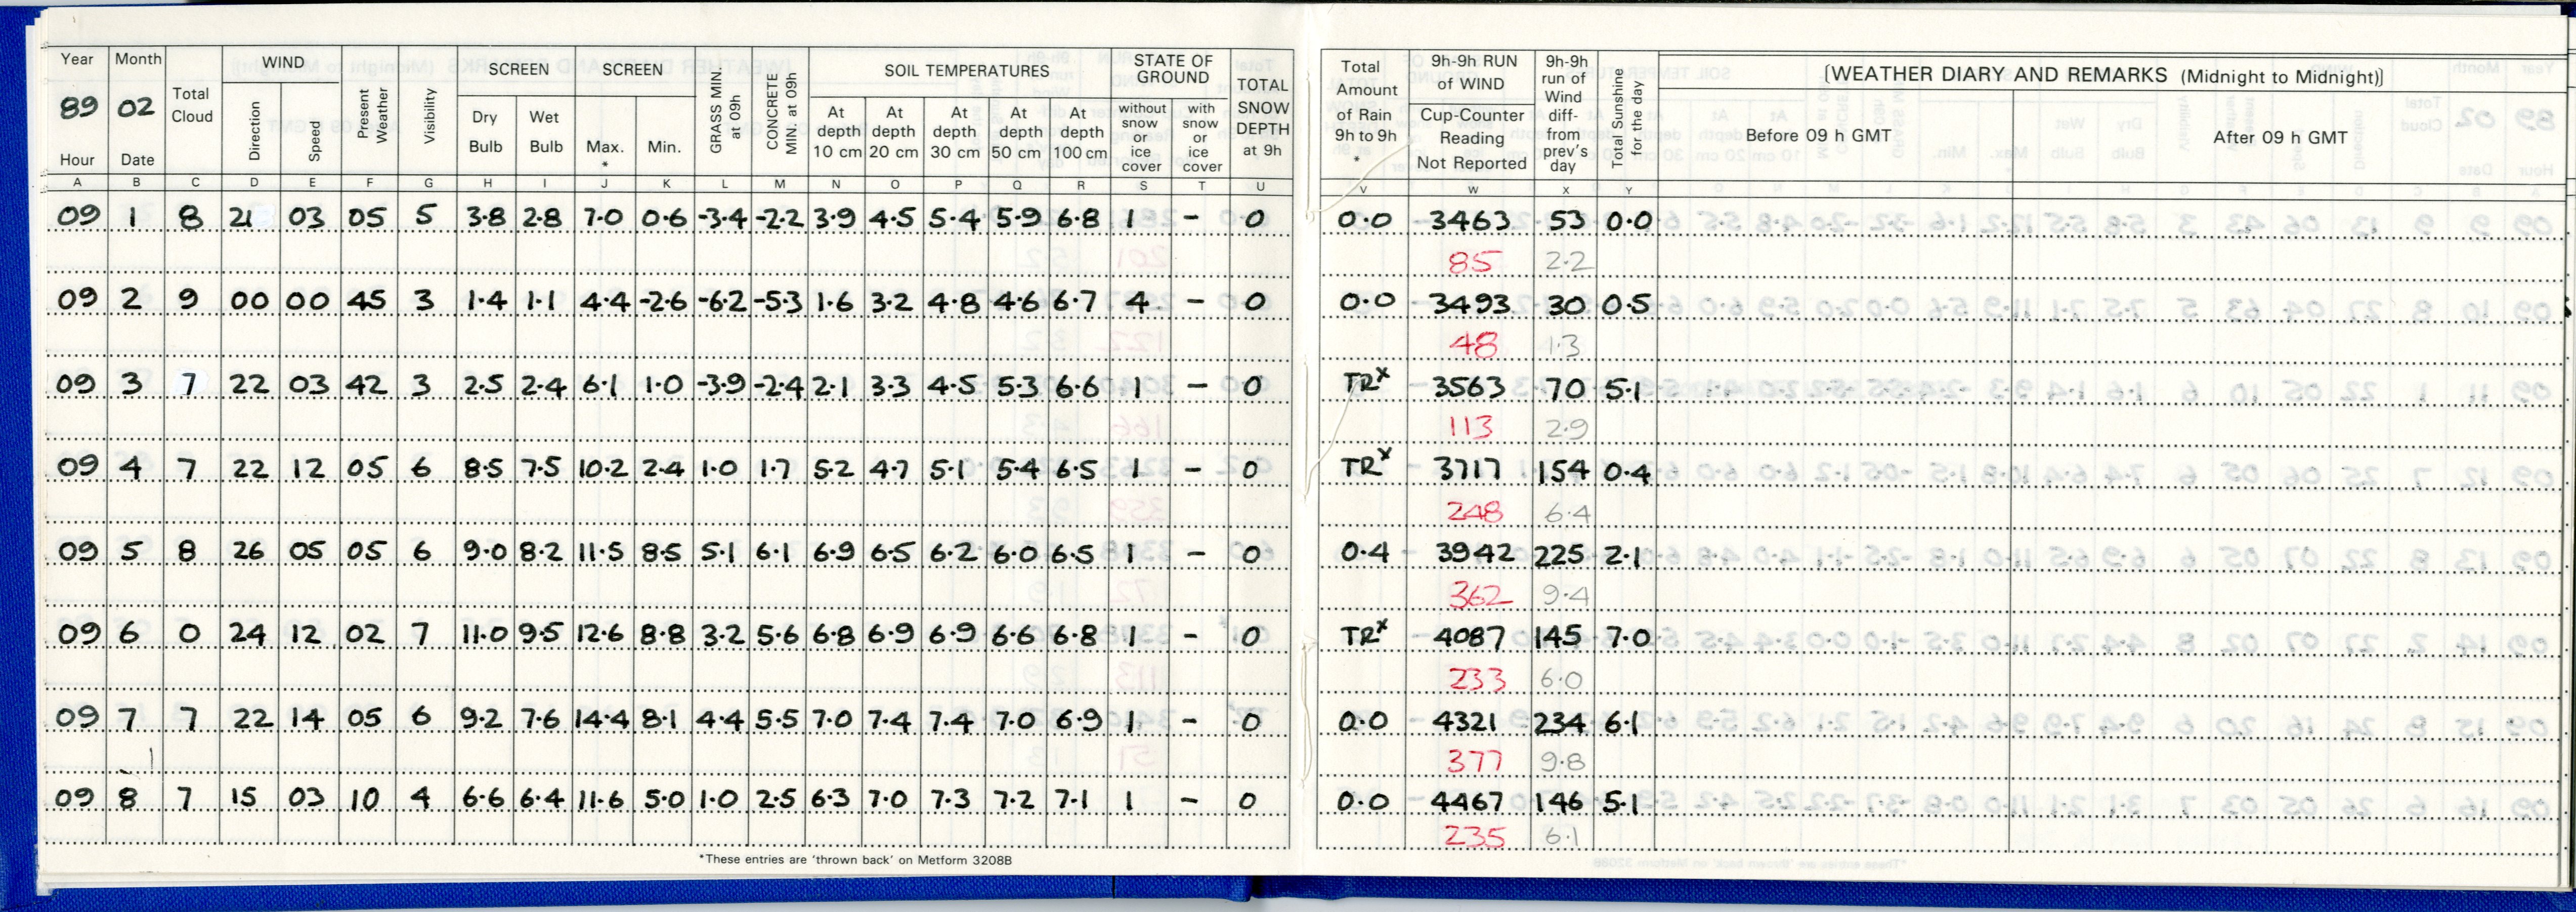 Year Month Total Cloud WIND Present Weather Visibility SCREEN SCREEN GRASS MIN. at 09h CONCRETE MIN. at 09h SOIL TEMPERATURES STATE OF GROUND TOTAL SNOW DEPTH at 9h Total Amount of Rain 9h to 9h * 9h-9h RUN of WIND 9h-9h run of Wind diff- from prev's day Total Sunshine for the day [WEATHER DIARY AND REMARKS (Midnight to Midnight)]
89 02 Direction Speed Dry Bulb Wet Bulb Max. * Min. At depth 10 cm At depth 20 cm At depth 30 cm At depth 50 cm At depth 100 cm without snow or ice cover with snow or ice cover Cup-Counter Reading Not Reported Before 09 h GMT After 09 h GMT
Hour Date
A B C D E F G H I J K L M N O P Q R S T U V W X Y
09 1 8 21 03 05 5 3.8 2.8 7.0 0.6 -3.4 -2.2 3.9 4.5 5.4 5.9 6.8 1 - 0 0.0 3463 53 0.0
85 2.2
09 2 9 00 00 45 3 1.4 1.1 4.4 -2.6 -6.2 -5.3 1.6 3.2 4.8 4.6 6.7 4 - 0 0.0 3493 30 0.5
48 1.3
09 3 7 22 03 42 3 2.5 2.4 6.1 1.0 -3.9 -2.4 2.1 3.3 4.5 5.3 6.6 1 - 0 TRx 3563 70 5.1
113 2.9
09 4 7 22 12 05 6 8.5 7.5 10.2 2.4 1.0 1.7 5.2 4.7 5.1 5.4 6.5 1 - 0 TRx 3717 154 0.4
248 6.4
09 5 8 26 05 05 6 9.0 8.2 11.5 8.5 5.1 6.1 6.9 6.5 6.2 6.0 6.5 1 - 0 0.4 3942 225 2.1
362 9.4
09 6 0 24 12 02 7 11.0 9.5 12.6 8.8 3.2 5.6 6.8 6.9 6.9 6.6 6.8 1 - 0 TRx 4087 145 7.0
233 6.0
09 7 7 22 14 05 6 9.2 7.6 14.4 8.1 4.4 5.5 7.0 7.4 7.4 7.0 6.9 1 - 0 0.0 4321 234 6.1
377 9.8
09 8 7 15 03 10 4 6.6 6.4 11.6 5.0 1.0 2.5 6.3 7.0 7.3 7.2 7.1 1 - 0 0.0 4467 146 5.1
235 6.1
*These entries are 'thrown back' on Metform 3208B